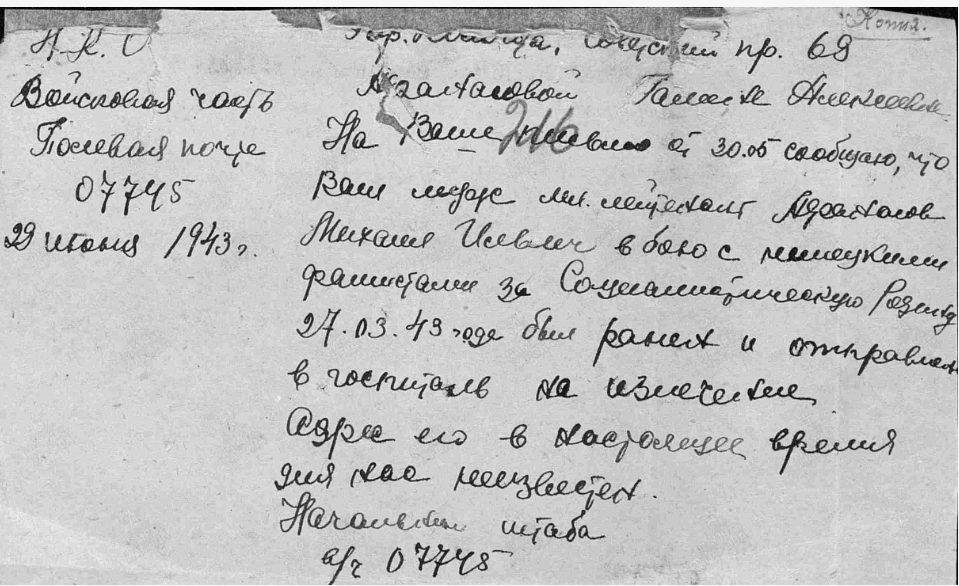 Копия.
Н. К. О
пр. 68
Войсковая часть
Полевая почта
07745
29 июня 1943 г.
Галине Алексеевне
На Ваше письмо от 30.05 сообщаю, что
Ваш муж мл. лейтенант
Михаил Ильич в бою с немецкими
фашистами за Социалистическую Родину
27.03.43 года был ранен и отправлен
в госпиталь на излечение
Адрес его в настоящее время
для нас неизвестен.
Начальник штаба
в/ч 07745
246